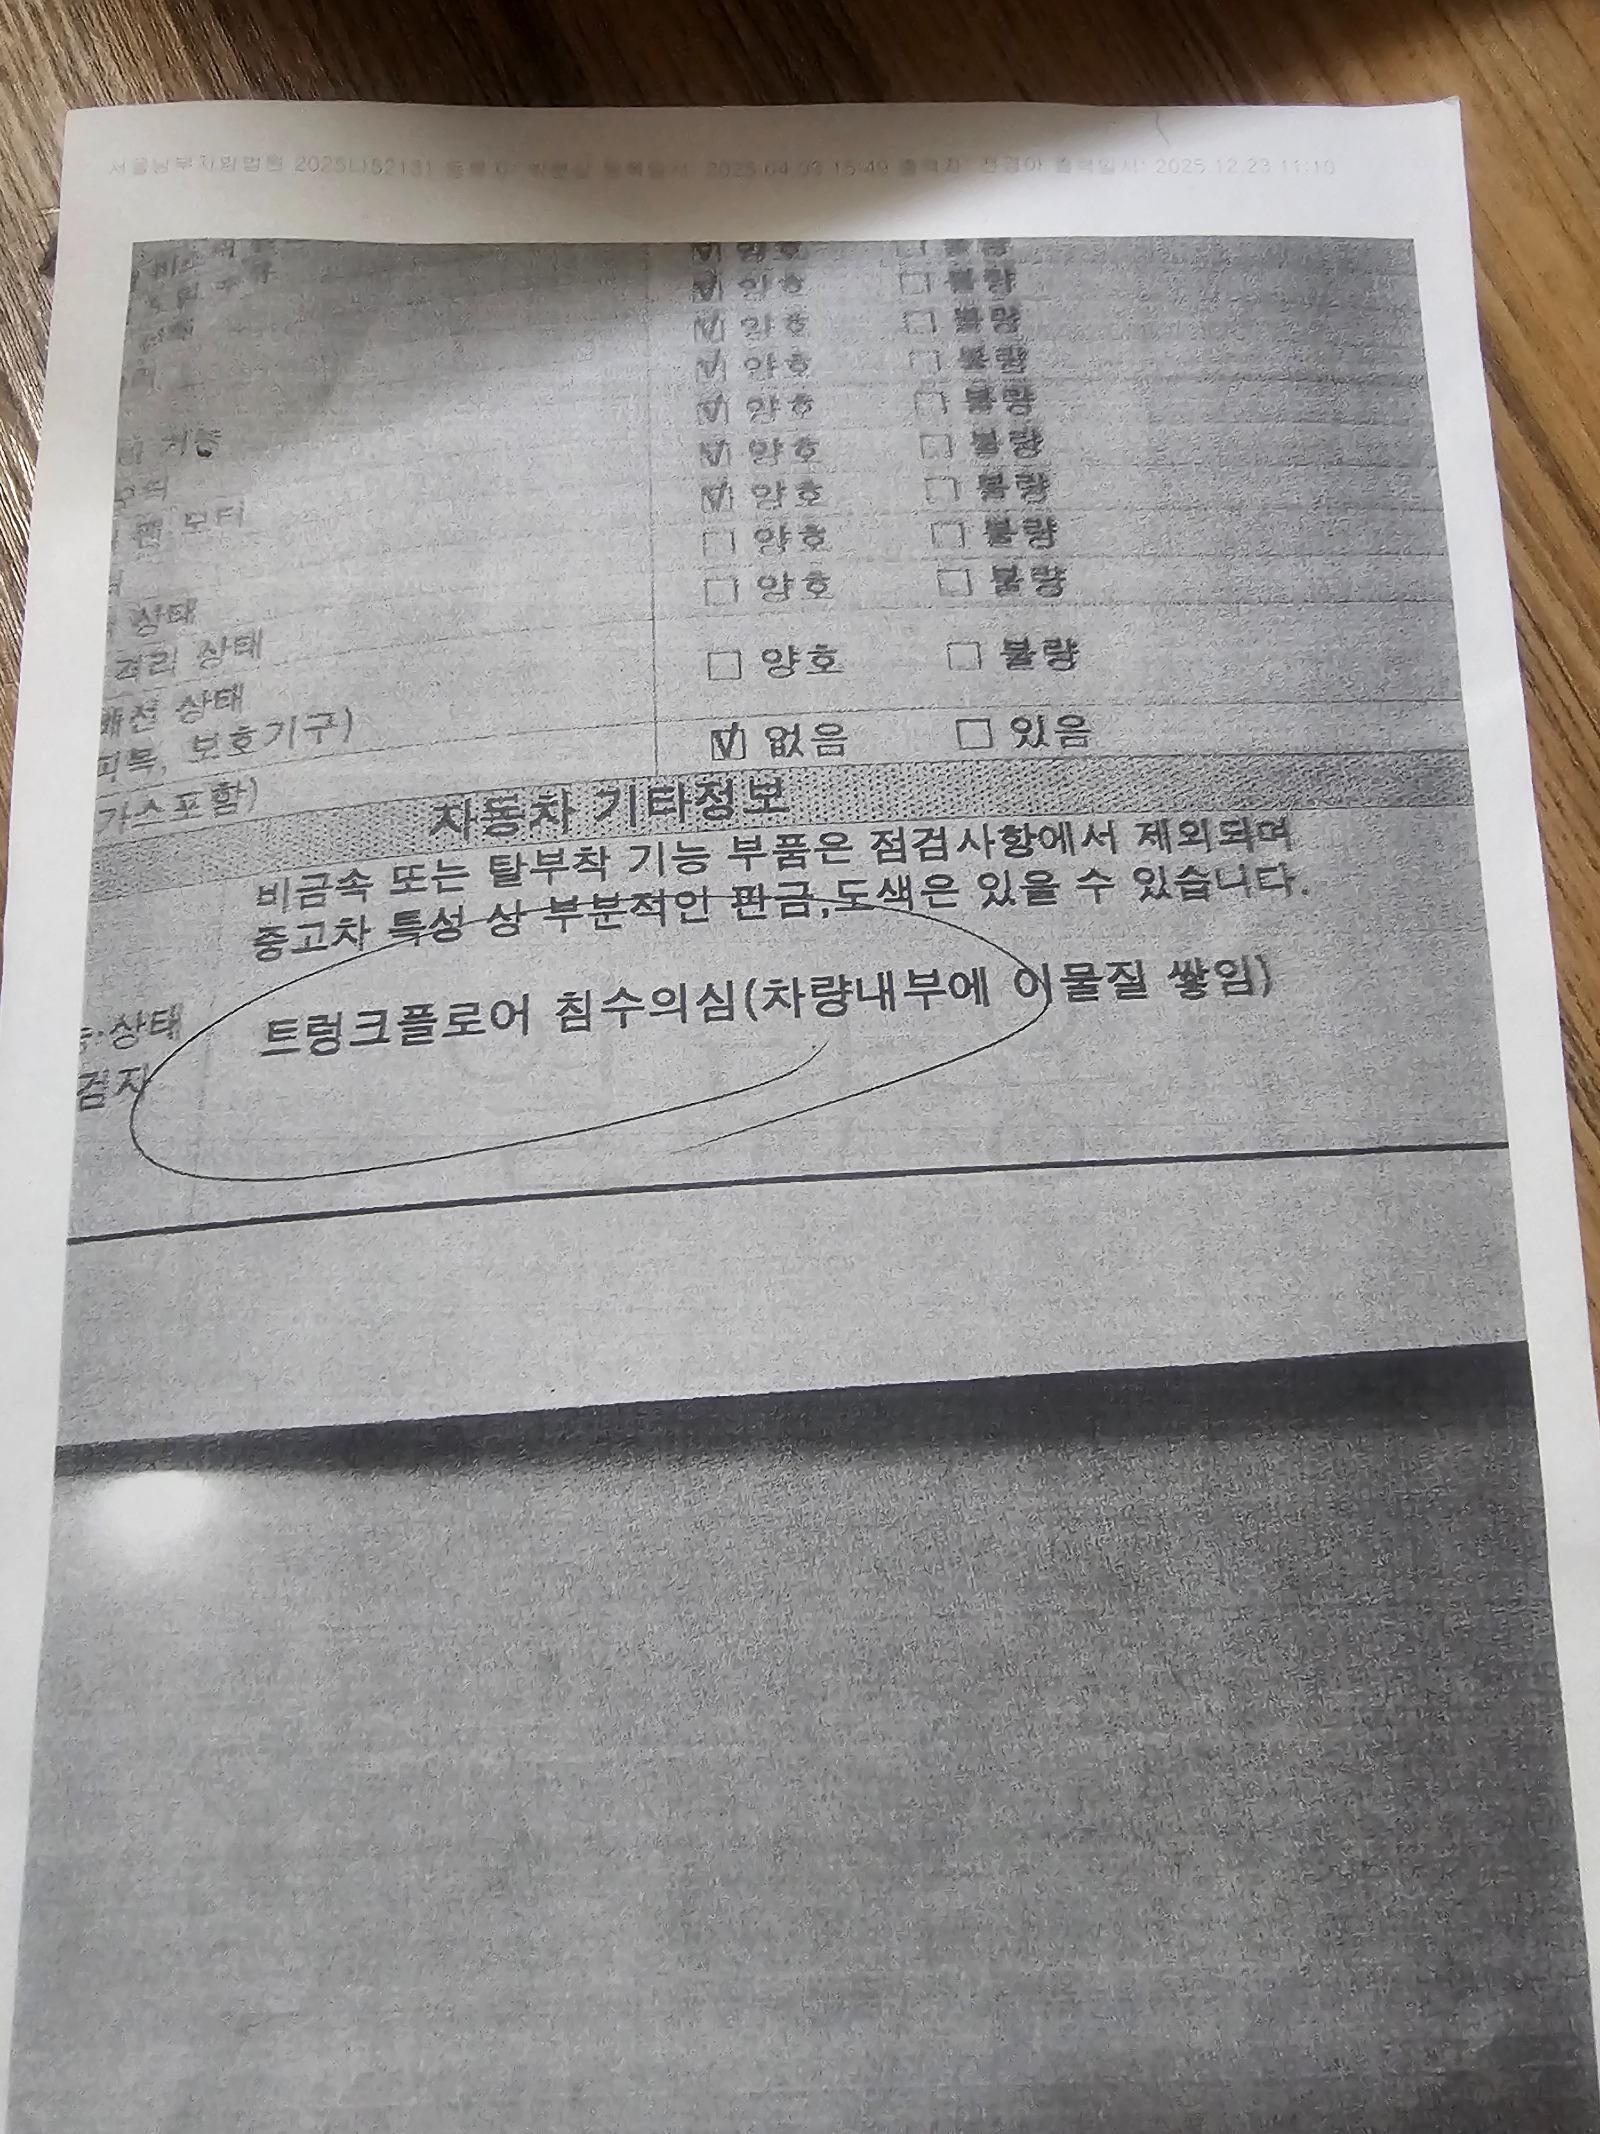 서울남부지방법원 2025나52131 등록일시: 2025.04.03 15:49 출력일시: 2025.12.23 11:10
양호 불량
양호 불량
양호 불량
양호 불량
양호 불량
양호 불량
모터 양호 불량
양호 불량
상태 양호 불량
격리 상태 양호 불량
상태
보호기구)
가스포함) 없음 있음
자동차 기타정보
비금속 또는 탈부착 기능 부품은 점검사항에서 제외되며
중고차 특성 상 부분적인 판금,도색은 있을 수 있습니다.
상태 트렁크플로어 침수의심(차량내부에 이물질 쌓임)
검자